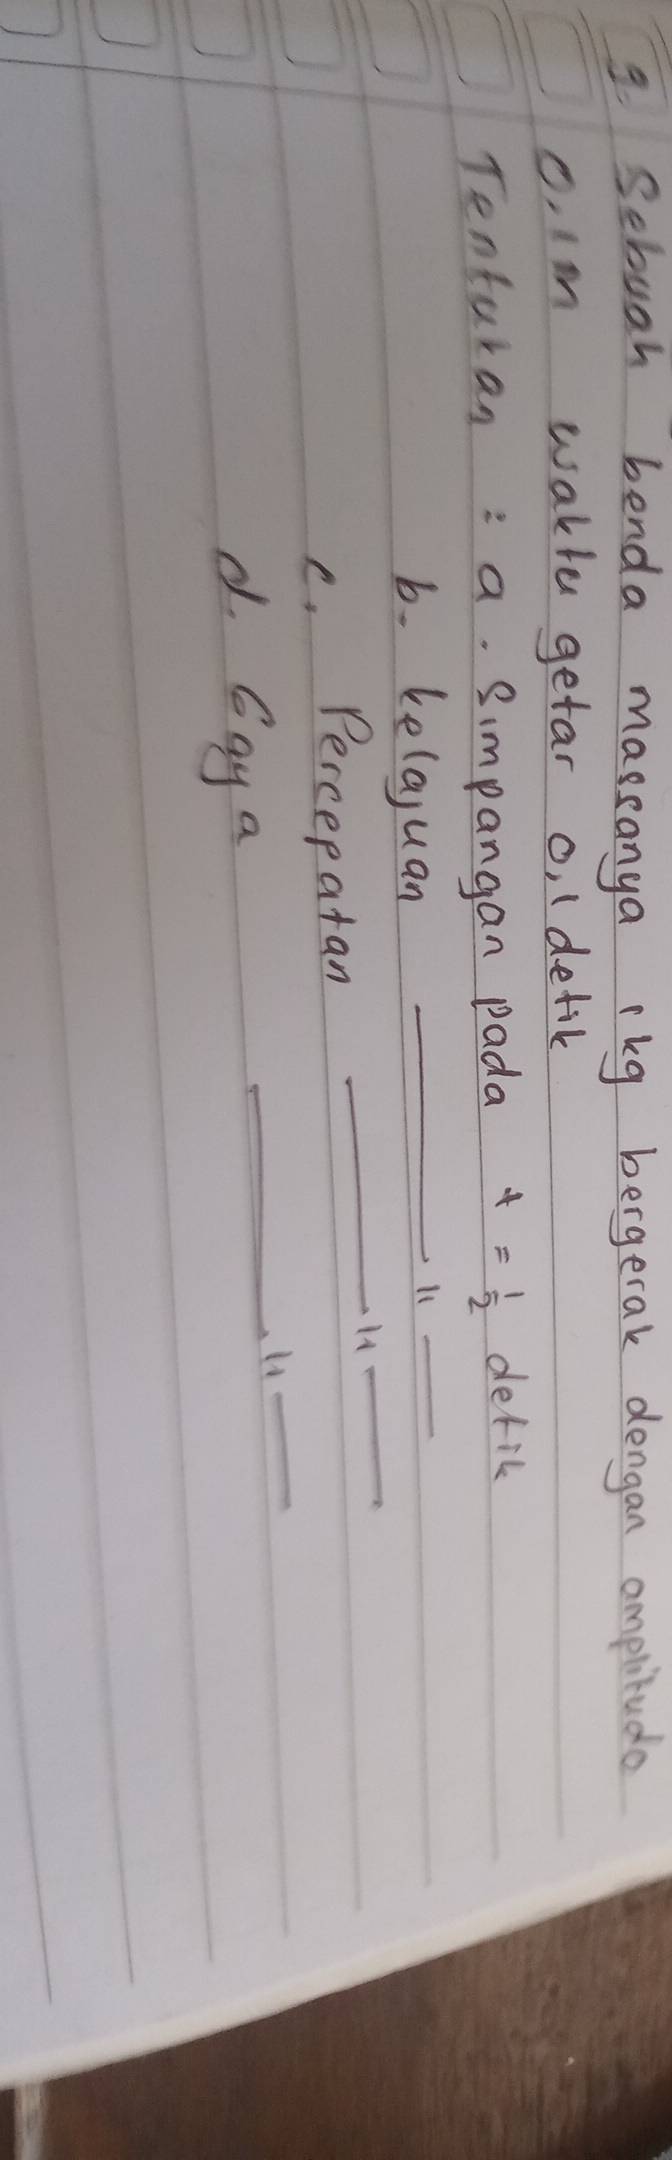 9. Sebuah benda massanya 1kg bergerak dengan amplitudo
0,1m waktu getar 0,1 detik
Tentukan : a. Simpangan pada t = 1/2 detik
b. kelajuan —— " ——
c. Percepatan —— " ——
d. Gaya —— " ——